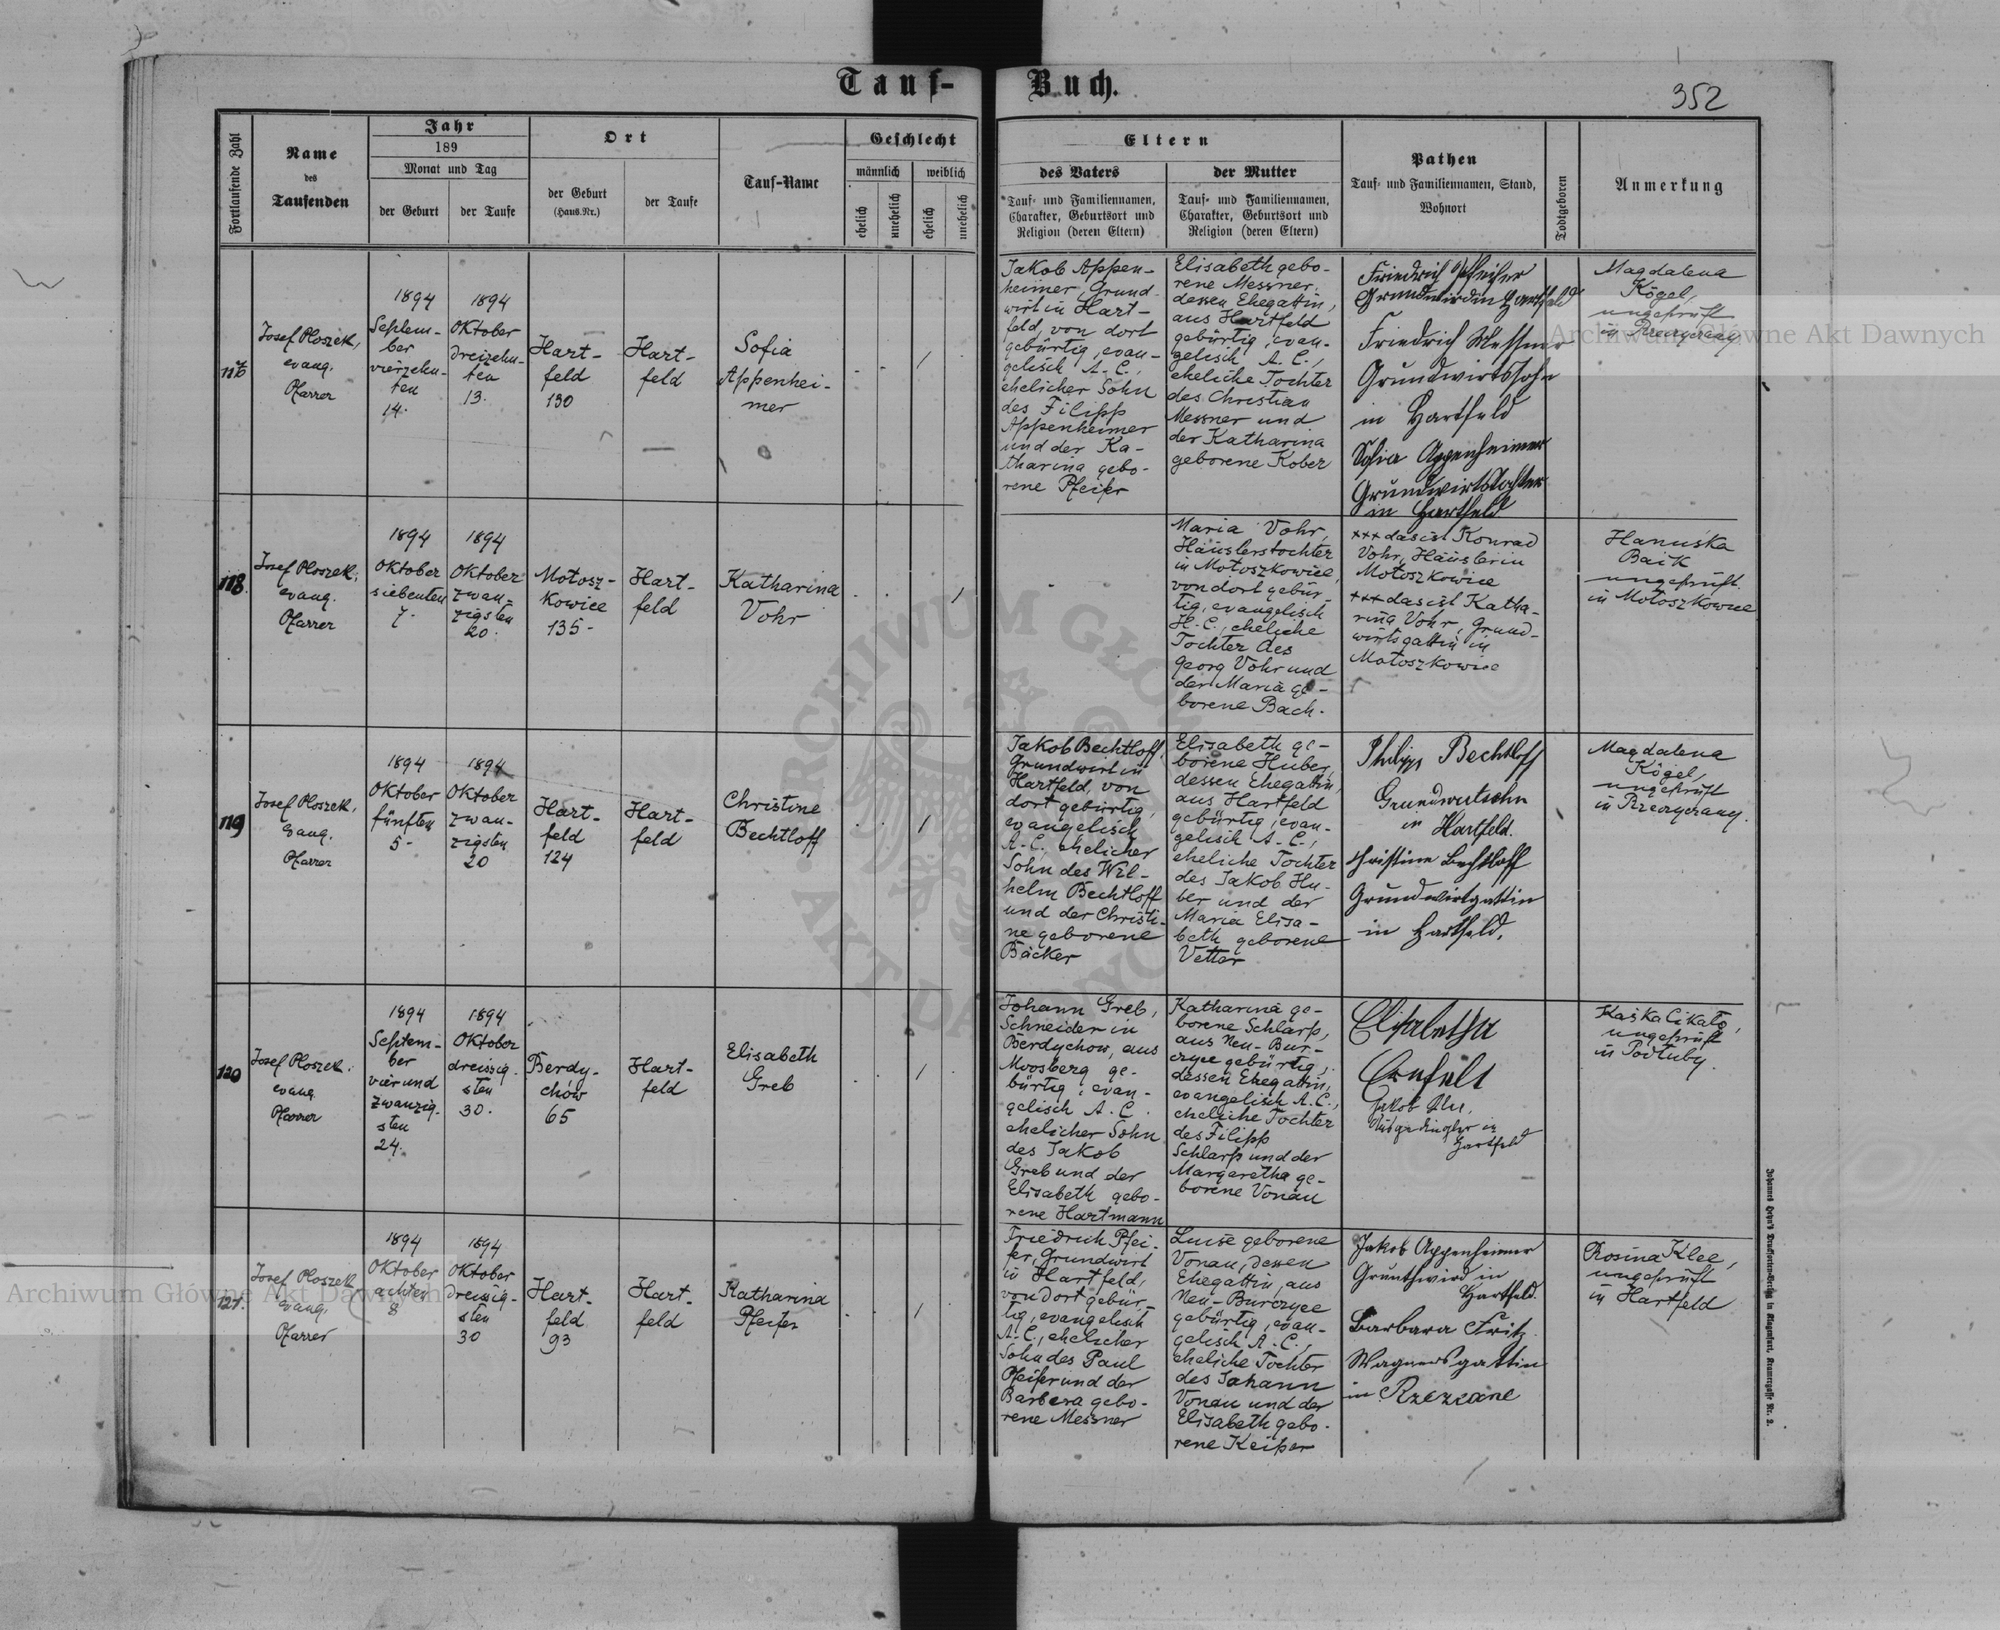 Tauf-Buch.
352
Fortlaufende Zahl
Name
des
Taufenden
Jahr
189
Monat und Tag
der Geburt
der Taufe
Ort
der Geburt
(Haus.Nr.)
der Taufe
Tauf-Name
Geschlecht
männlich
weiblich
ehelich
unehelich
ehelich
unehelich
Eltern
des Vaters
Tauf- und Familiennamen,
Charakter, Geburtsort und
Religion (deren Eltern)
der Mutter
Tauf- und Familiennamen,
Charakter, Geburtsort und
Religion (deren Eltern)
Pathen
Tauf- und Familiennamen, Stand,
Wohnort
Todtgeboren
Anmerkung
Josef Ploszek,
evang.
Pfarrer
1894
Septem-
ber
vierzehn-
ten
14.
1894
Oktober
dreizehn-
ten
13.
Hart-
feld
130
Hart-
feld
Sofia
Appenhei-
mer
Jakob Appen-
heimer, Grund-
wirt in Hart-
feld, von dort
gebürtig, evan-
gelisch A.C.,
ehelicher Sohn
des Filipp
Appenheimer
und der Ka-
tharina gebo-
rene Pfeifer
Elisabeth gebo-
rene Messner,
dessen Ehegattin,
aus Hartfeld
gebürtig, evan-
gelisch A.C.,
eheliche Tochter
des Christian
Messner und
der Katharina
geborene Kober
Friedrich Pfeifer
Grundwirt in Hartfeld
Friedrich Messner
Grundwirtssohn
in Hartfeld
Sofia Appenheimer
Grundwirtstochter
in Hartfeld
Magdalena
Kögel,
ungeprüft
in
118.
Josef Ploszek,
evang.
Pfarrer
1894
Oktober
siebenten
7.
1894
Oktober
zwan-
zigsten
20.
Motosz-
kowice
135-
Hart-
feld
Katharina
Vohr
Maria Vohr,
Häuslerstochter
in Motoszkowice,
von dort gebür-
tig, evangelisch
H.C., eheliche
Tochter des
Georg Vohr und
der Maria ge-
borene Bach.
+++ das ist Konrad
Vohr, Häusler in
Motoszkowice
+++ das ist Katha-
rina Vohr, Grund-
wirtsgattin in
Motoszkowice
Hanuśka
Baik
ungeprüft
in Motoszkowice
119
Josef Ploszek,
evang.
Pfarrer
1894
Oktober
fünften
5-
1894
Oktober
zwan-
zigsten
20
Hart-
feld
124
Hart-
feld
Christine
Bechtloff
Jakob Bechtloff,
Grundwirt in
Hartfeld, von
dort gebürtig,
evangelisch
A.C., ehelicher
Sohn des Wil-
helm Bechtloff
und der Christi-
ne geborene
Bäcker
Elisabeth ge-
borene Huber,
dessen Ehegattin,
aus Hartfeld
gebürtig, evan-
gelisch A.C.,
eheliche Tochter
des Jakob Hu-
ber und der
Maria Elisa-
beth geborene
Vetter
Philipp Bechtloff
Grundwirtsohn
in Hartfeld.
Christine Bechtloff
Grundwirtgattin
in Hartfeld.
Magdalena
Kögel,
ungeprüft
in
120
Josef Ploszek,
evang.
Pfarrer
1894
Septem-
ber
vierund
zwanzig-
sten
24.
1894
Oktober
dreissig-
sten
30.
Berdy-
chów
65
Hart-
feld
Elisabeth
Greb
Johann Greb,
Schneider in
Berdychow, aus
Moosberg ge-
bürtig, evan-
gelisch A.C.
ehelicher Sohn
des Jakob
Greb und der
Elisabeth gebo-
rene Hartmann
Katharina ge-
borene Schlarp,
aus Neu-Bur-
czyce gebürtig,
dessen Ehegattin,
evangelisch A.C.,
eheliche Tochter
des Filipp
Schlarp und der
Margaretha ge-
borene Vonau
Elisabetha
Jakob
in
Hartfeld
Kaśka Cikało,
ungeprüft
in Podłuby.
121.
Josef Ploszek
evang.
Pfarrer
1894
Oktober
achten
8
1894
Oktober
dreissig-
sten
30
Hart-
feld
93
Hart-
feld
Katharina
Pfeifer
Friedrich Pfei-
fer, Grundwirt
in Hartfeld,
von dort gebür-
tig, evangelisch
A.C., ehelicher
Sohn des Paul
Pfeifer und der
Barbera gebo-
rene Messner
Luise geborene
Vonau, dessen
Ehegattin, aus
Neu-Burczyce
gebürtig, evan-
gelisch A.C.,
eheliche Tochter
des Johann
Vonau und der
Elisabeth gebo-
rene Keiper
Jakob Appenheimer
Grunthwird in
Hartfeld.
Barbara Fritz
Wagnersgattin
in Rzezcane
Rosina Klee,
ungeprüft
in Hartfeld
Johannes Heyn's Drucksorten-Verlag in Klagenfurt, Kramergasse Nr. 2.
Archiwum Główne Akt Dawnych
Archiwum Główne Akt Dawnych
ARCHIWUM GŁÓWNE AKT DAWNYCH